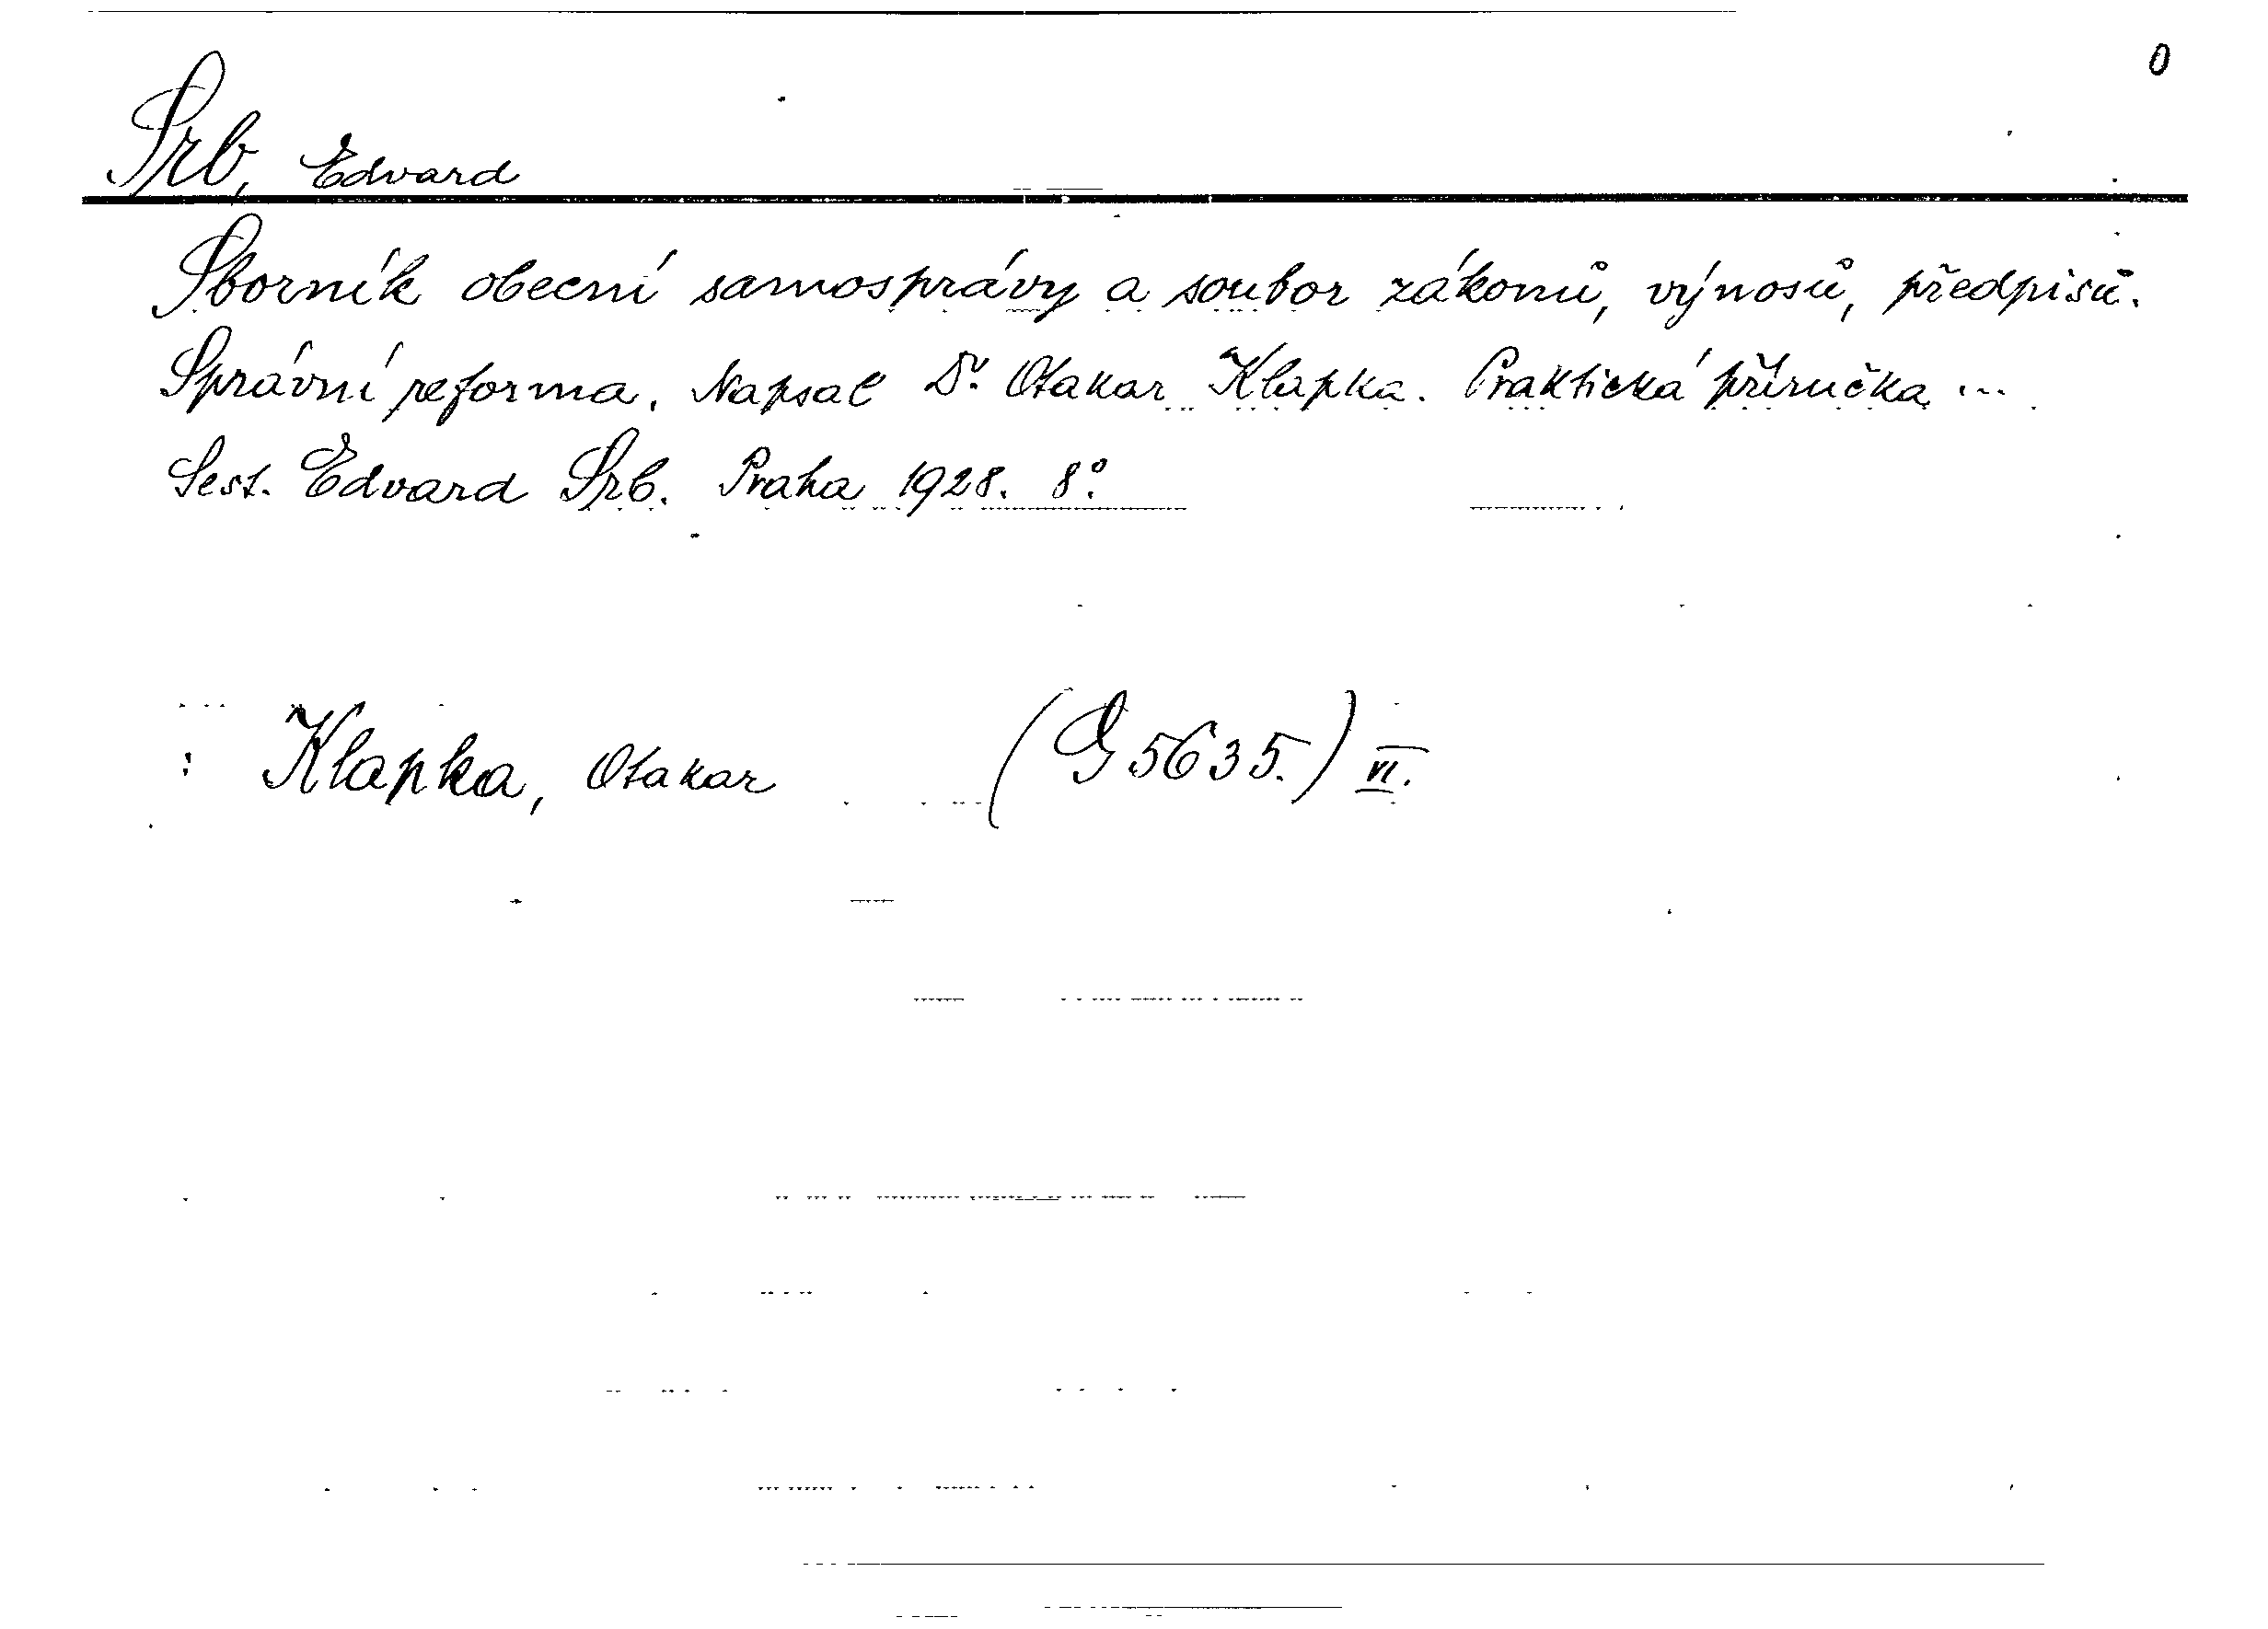 0
Srb, Edvard
Sborník obecní samosprávy a soubor zákonů, výnosů, předpisů.
Správní reforma. Napsal Dr. Otakar Klapka. Praktická příručka ...
Sest. Edvard Srb. Praha 1928. 8°.
: Klapka, Otakar (G 5635.) VI.